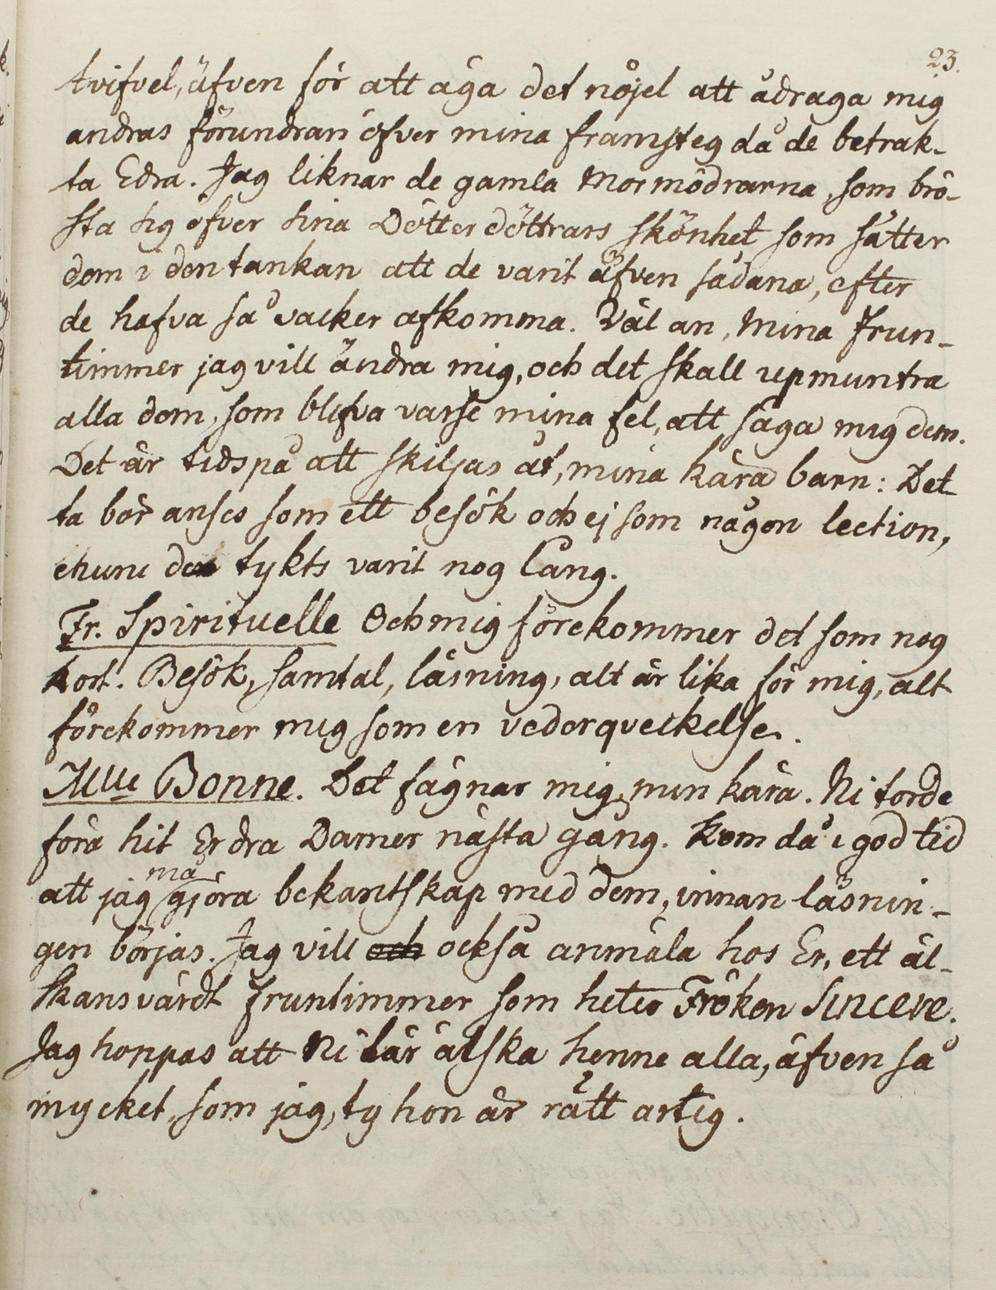 23.
tvifvel, äfven för att äga det nöjet att ådraga mig
andras förundran öfver mina framsteg då de betrak-
ta Edra. Jag liknar de gamla Mormödrarna, som brö-
sta sig öfver sina Dötter döttrars skönhet som sätter
dem i den tankan att de varit äfven sådana, efter
de hafva så vacker afkomma. Väl an, Mina Frun-
timmer jag vill ändra mig, och det skall upmuntra
alla dem, som blifva varse mina fel, att säga mig dem.
Det är tids på att skiljas åt, mina kära barn: Det-
ta bör anses som ett besök och ej som någon lection,
ehuru det tykts varit nog lång.
Fr. Spirituelle Och mig förekommer det som nog
kort. Besök, samtal, läsning, alt är lika för mig, alt
förekommer mig som en vederqveckelse.
Mlle Bonne. Det fägnar mig, min kära. Ni torde
föra hit Erdra Damer nästa gång. Kom då i god tid
att jag må gjöra bekantskap med dem, innan läsnin-
gen börjas. Jag vill och också anmäla hos Er, ett äl-
skansvärdt Fruntimmer som heter Fröken Sincere.
Jag hoppas att Ni lär älska henne alla, äfven så
mycket, som jag, ty hon är rätt artig.